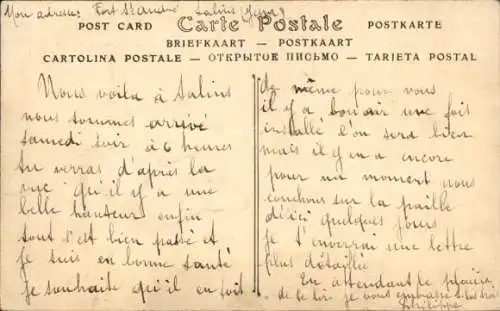 Mon adresse: Fort St André Salins (Jura)
Carte Postale
POST CARD
POSTKARTE
BRIEFKAART — POSTKAART
CARTOLINA POSTALE — ОТКРЫТОЕ ПИСЬМО — TARJETA POSTAL
Nous voila à Salins
nous sommes arrivé
samedi soir à 6 heures
tu verras d'après la
vue qu'il y a une
belle hauteur enfin
tout s'est bien passé et
je suis en bonne santé
je souhaite qu'il en soit
de même pour vous
il y a bon air une fois
installé l'on sera bien
mais il y en a encore
pour un moment nous
couchons sur la paille
d'ici quelques jours
je t'enverrai une lettre
plus détaillée
En attendant le plaisir
de te lire je vous embrasse tous trois
Philippe